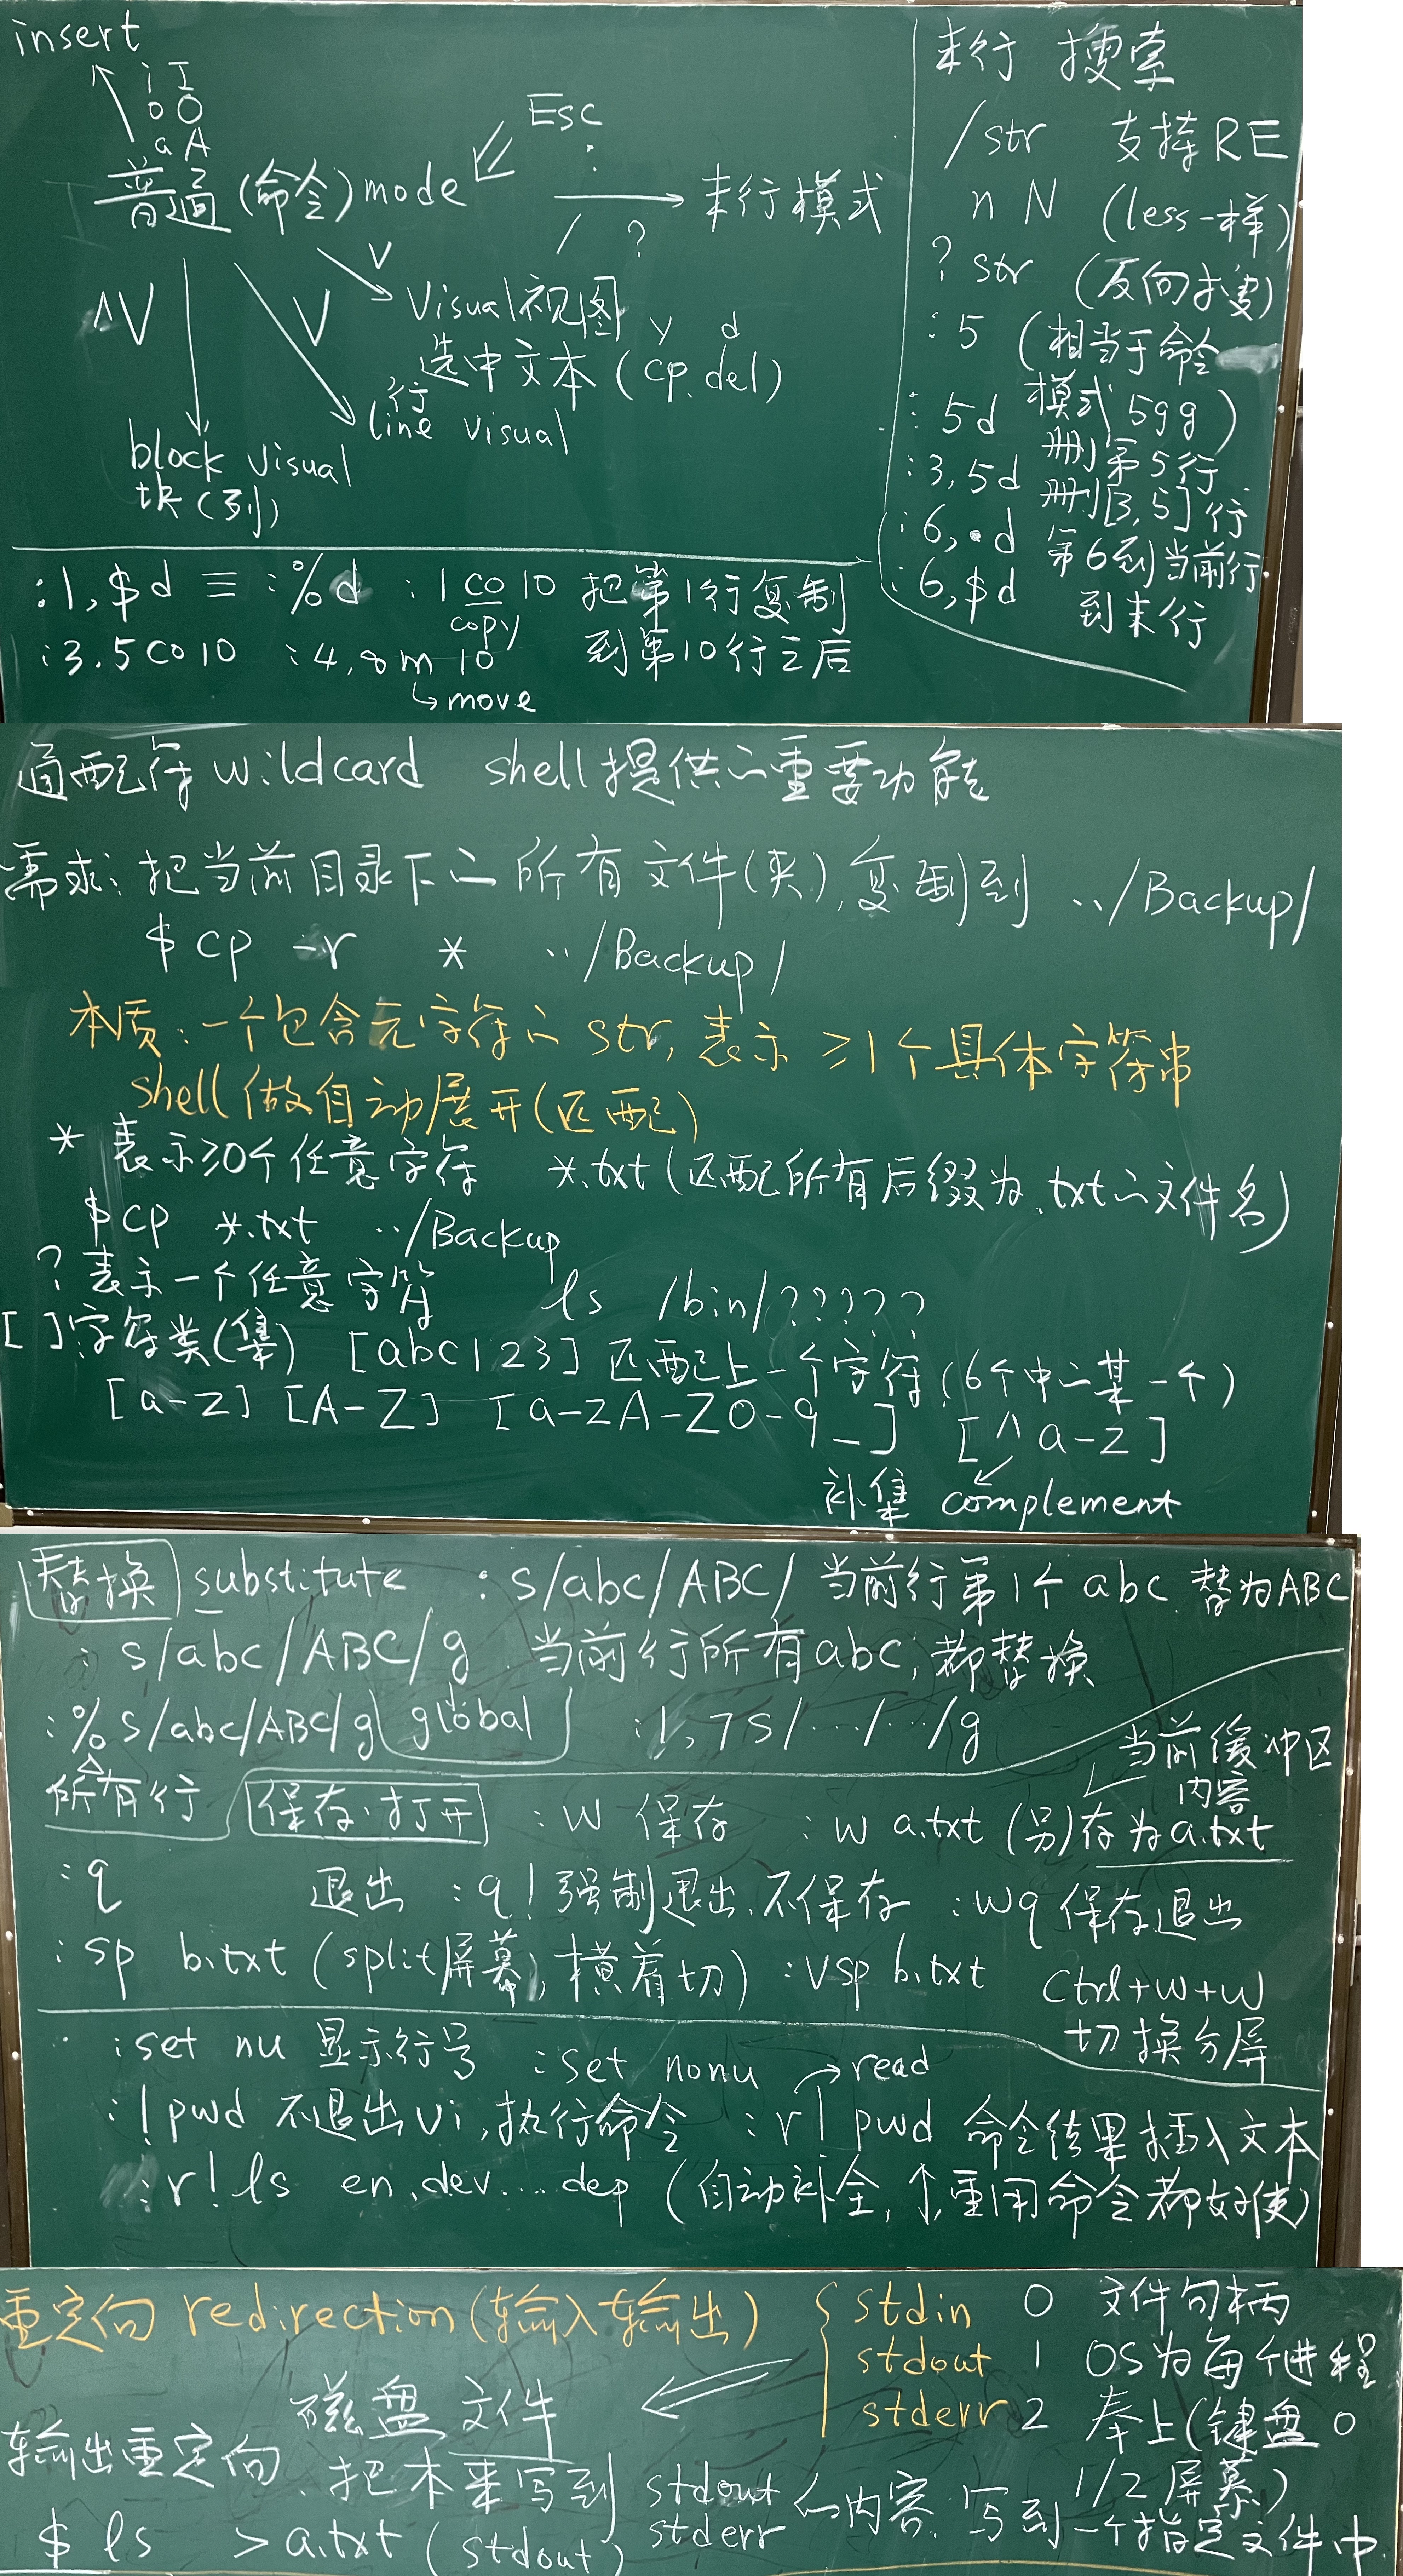 insert
i I
o O
a A
普通(命令)mode
Esc
:
/ ?
末行模式
^V
V
v
Visual视图 y d
选中文本(cp.del)
行
line visual
block visual
块(列)
末行 搜索
/str 支持RE
n N (less一样)
?str (反向搜)
:5 (相当于命令
模式5gg)
:5d 删第5行
:3,5d 删[3,5]行
:6,.d 第6到当前行
:6,$d 到末行
:1,$d ≡ :%d :1co10 把第1行复制
copy
:3.5co10 :4,8m10 到第10行之后
↳move
通配符wildcard shell提供的重要功能
需求:把当前目录下的所有文件(夹),复制到 ../Backup/
$ cp -r * ../Backup/
本质:一个包含元字符的str,表示≥1个具体字符串
shell做自动展开(匹配)
* 表示≥0个任意字符 *.txt(匹配所有后缀为.txt的文件名)
$ cp *.txt ../Backup
? 表示一个任意字符 ls /bin/?????
[ ]字符类(集) [abc123]匹配上一个字符(6个中的某一个)
[a-z] [A-Z] [a-zA-Z0-9_] [^a-z]
补集 complement
替换 substitute :s/abc/ABC/ 当前行第1个abc.替为ABC
:s/abc/ABC/g 当前行所有abc,都替换
:%s/abc/ABC/g global :1,7s/.../.../g
所有行
当前缓冲区
内容
保存.打开 :w 保存 :w a.txt (另)存为a.txt
:q 退出 :q!强制退出.不保存 :wq保存退出
:sp b.txt (split屏幕,横着切) :vsp b.txt Ctrl+w+w
切换分屏
:set nu 显示行号 :set nonu →read
:!pwd 不退出vi,执行命令 :r!pwd 命令结果插入文本
:r!ls en.dev....dep (自动补全,↑,重用命令都好使)
重定向 redirection(输入输出)
stdin 0 文件句柄
stdout 1 OS为每个进程
stderr 2 奉上(键盘0
1/2屏幕)
磁盘文件
输出重定向.把本来写到stdout
stderr 的内容.写到一个指定文件中.
$ ls >a.txt (stdout)